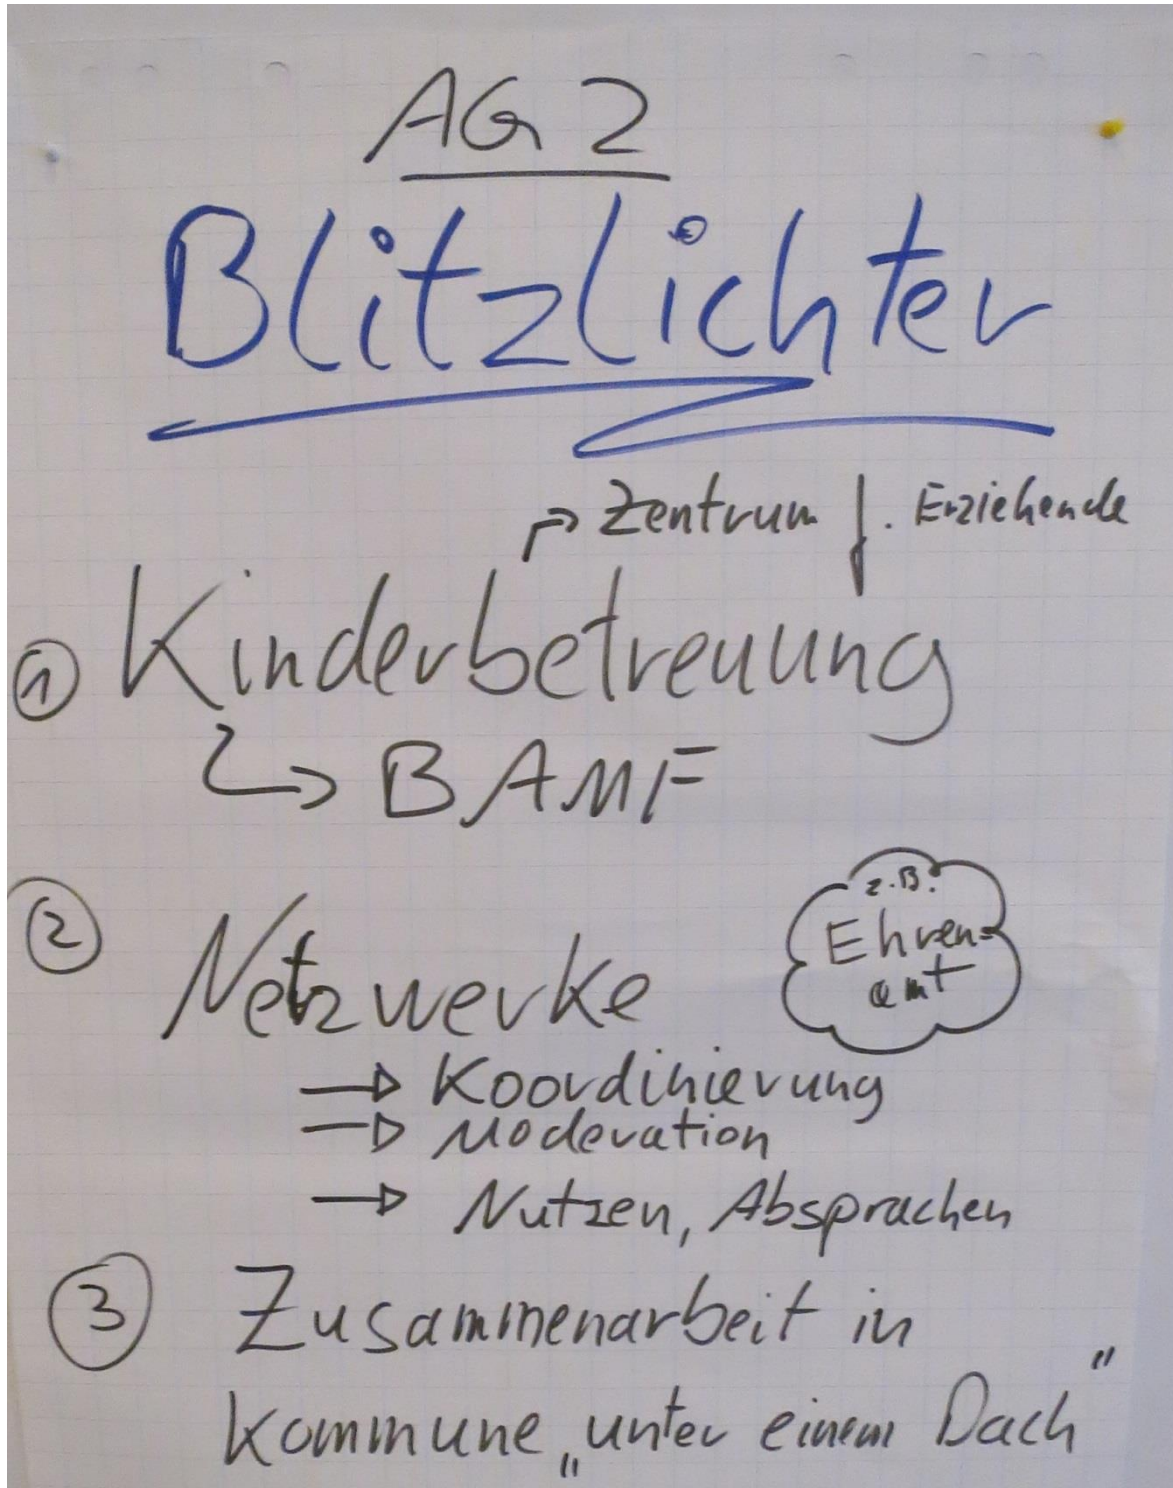 AG 2
Blitzlichter
→ Zentrum f. Erziehende
① Kinderbetreuung
↳ BAMF
② Netzwerke
z.B.
Ehren-
amt
→ Koordinierung
→ Moderation
→ Nutzen, Absprachen
③ Zusammenarbeit in
Kommune „unter einem Dach"